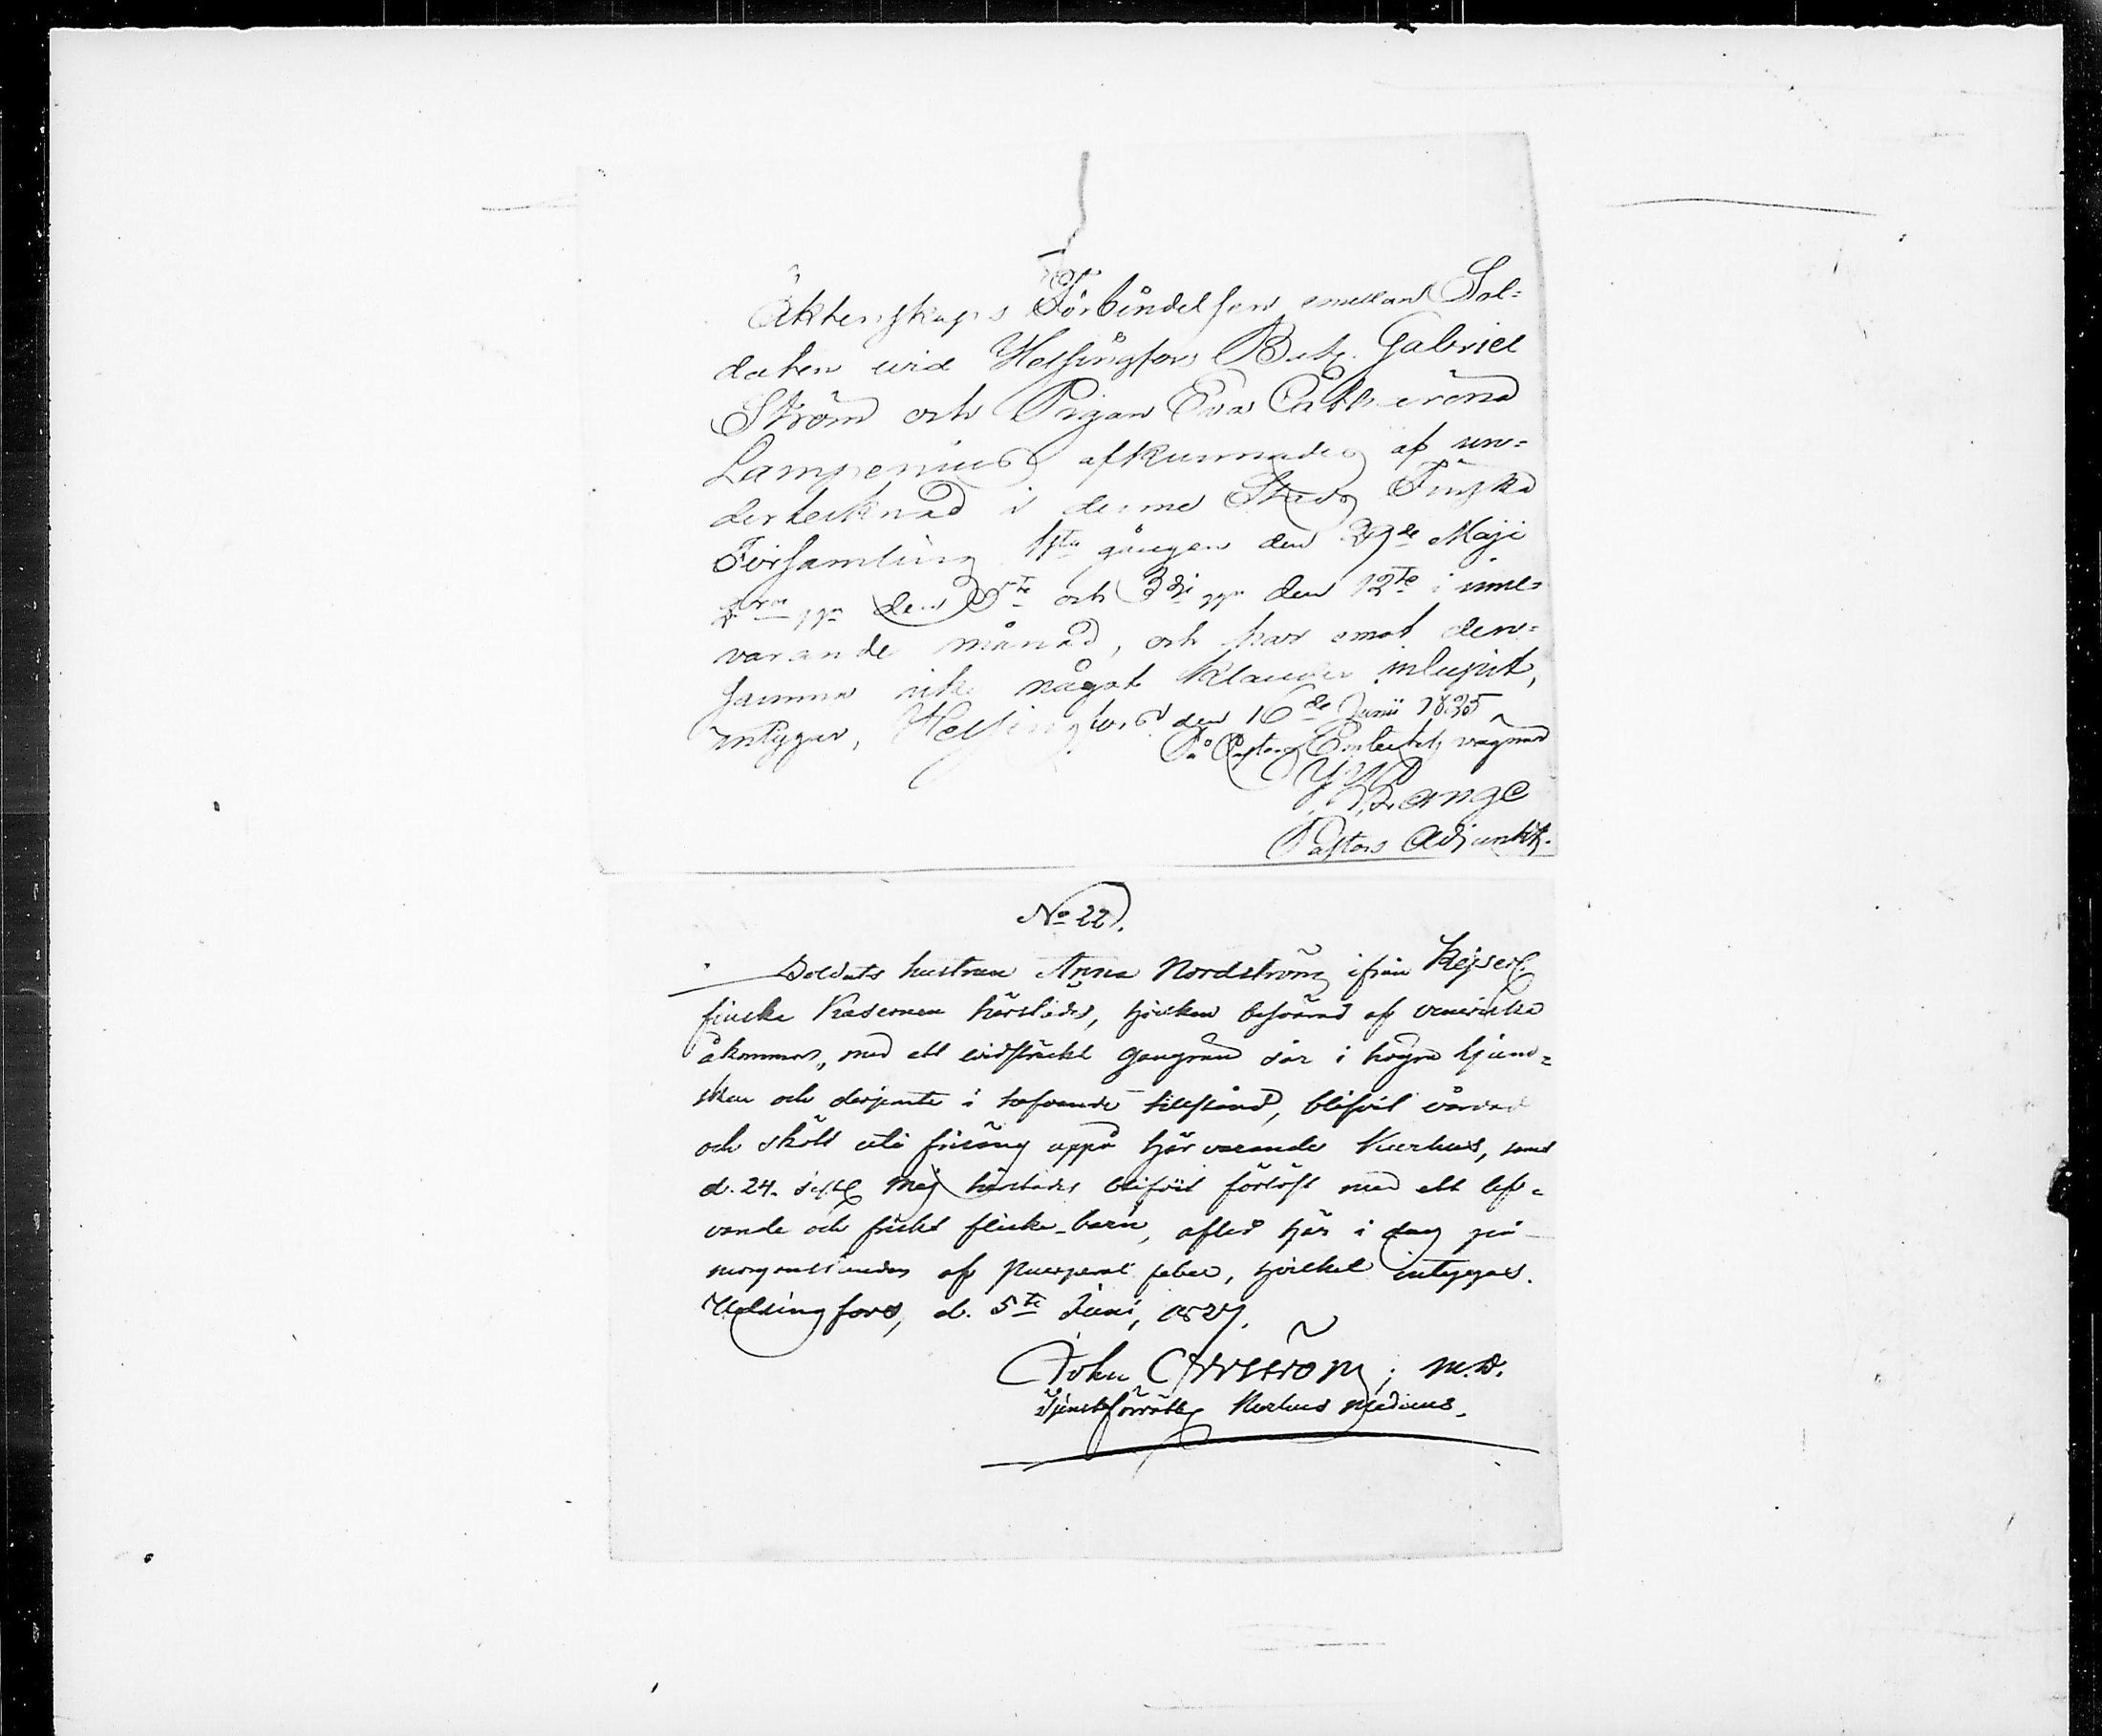 Äktenskaps Förbindelsen emellan Sol=
daten wid Helsingfors Bat. Gabriel
Ström och Pigan Eva Catharina
Lampenius afkunnades af un=
dertecknad i denne Stads Finska
Församling 1sta gången den 29de Maji
2dra ggn den 5te och 3dje ggn den 12te i inne=
varande månad, och har emot den=
samma icke något klander inlupit,
intygar, Helsingfors den 16de Junii 1825
På Pastors Embetets vägnar
Lange
Pastors Adjunkt.
No 22.
Soldats hustrun Anna Nordström ifrån Kejserl.
finska Kasernen härstädes, hvilken besvärad af veneriska
åkommor, med ett vidsträckt gangrend sår i högra ljum=
sken och derjemte i hafvande tillstånd, blifvit vårdad
och skött uti frisäng uppå härvarande Kurhus, samt
d. 24. sistl. Maj härstädes blifvit förlöst med ett lef=
vande och friskt flicke-barn, afled här i dag på
morgonstunden af Puerperal feber, hvilket intygas.
Helsingfors, d. 5te Juni, 1827.
John Ohrström; M.D.
Tjenstförrätt. Kurhus Medicus.